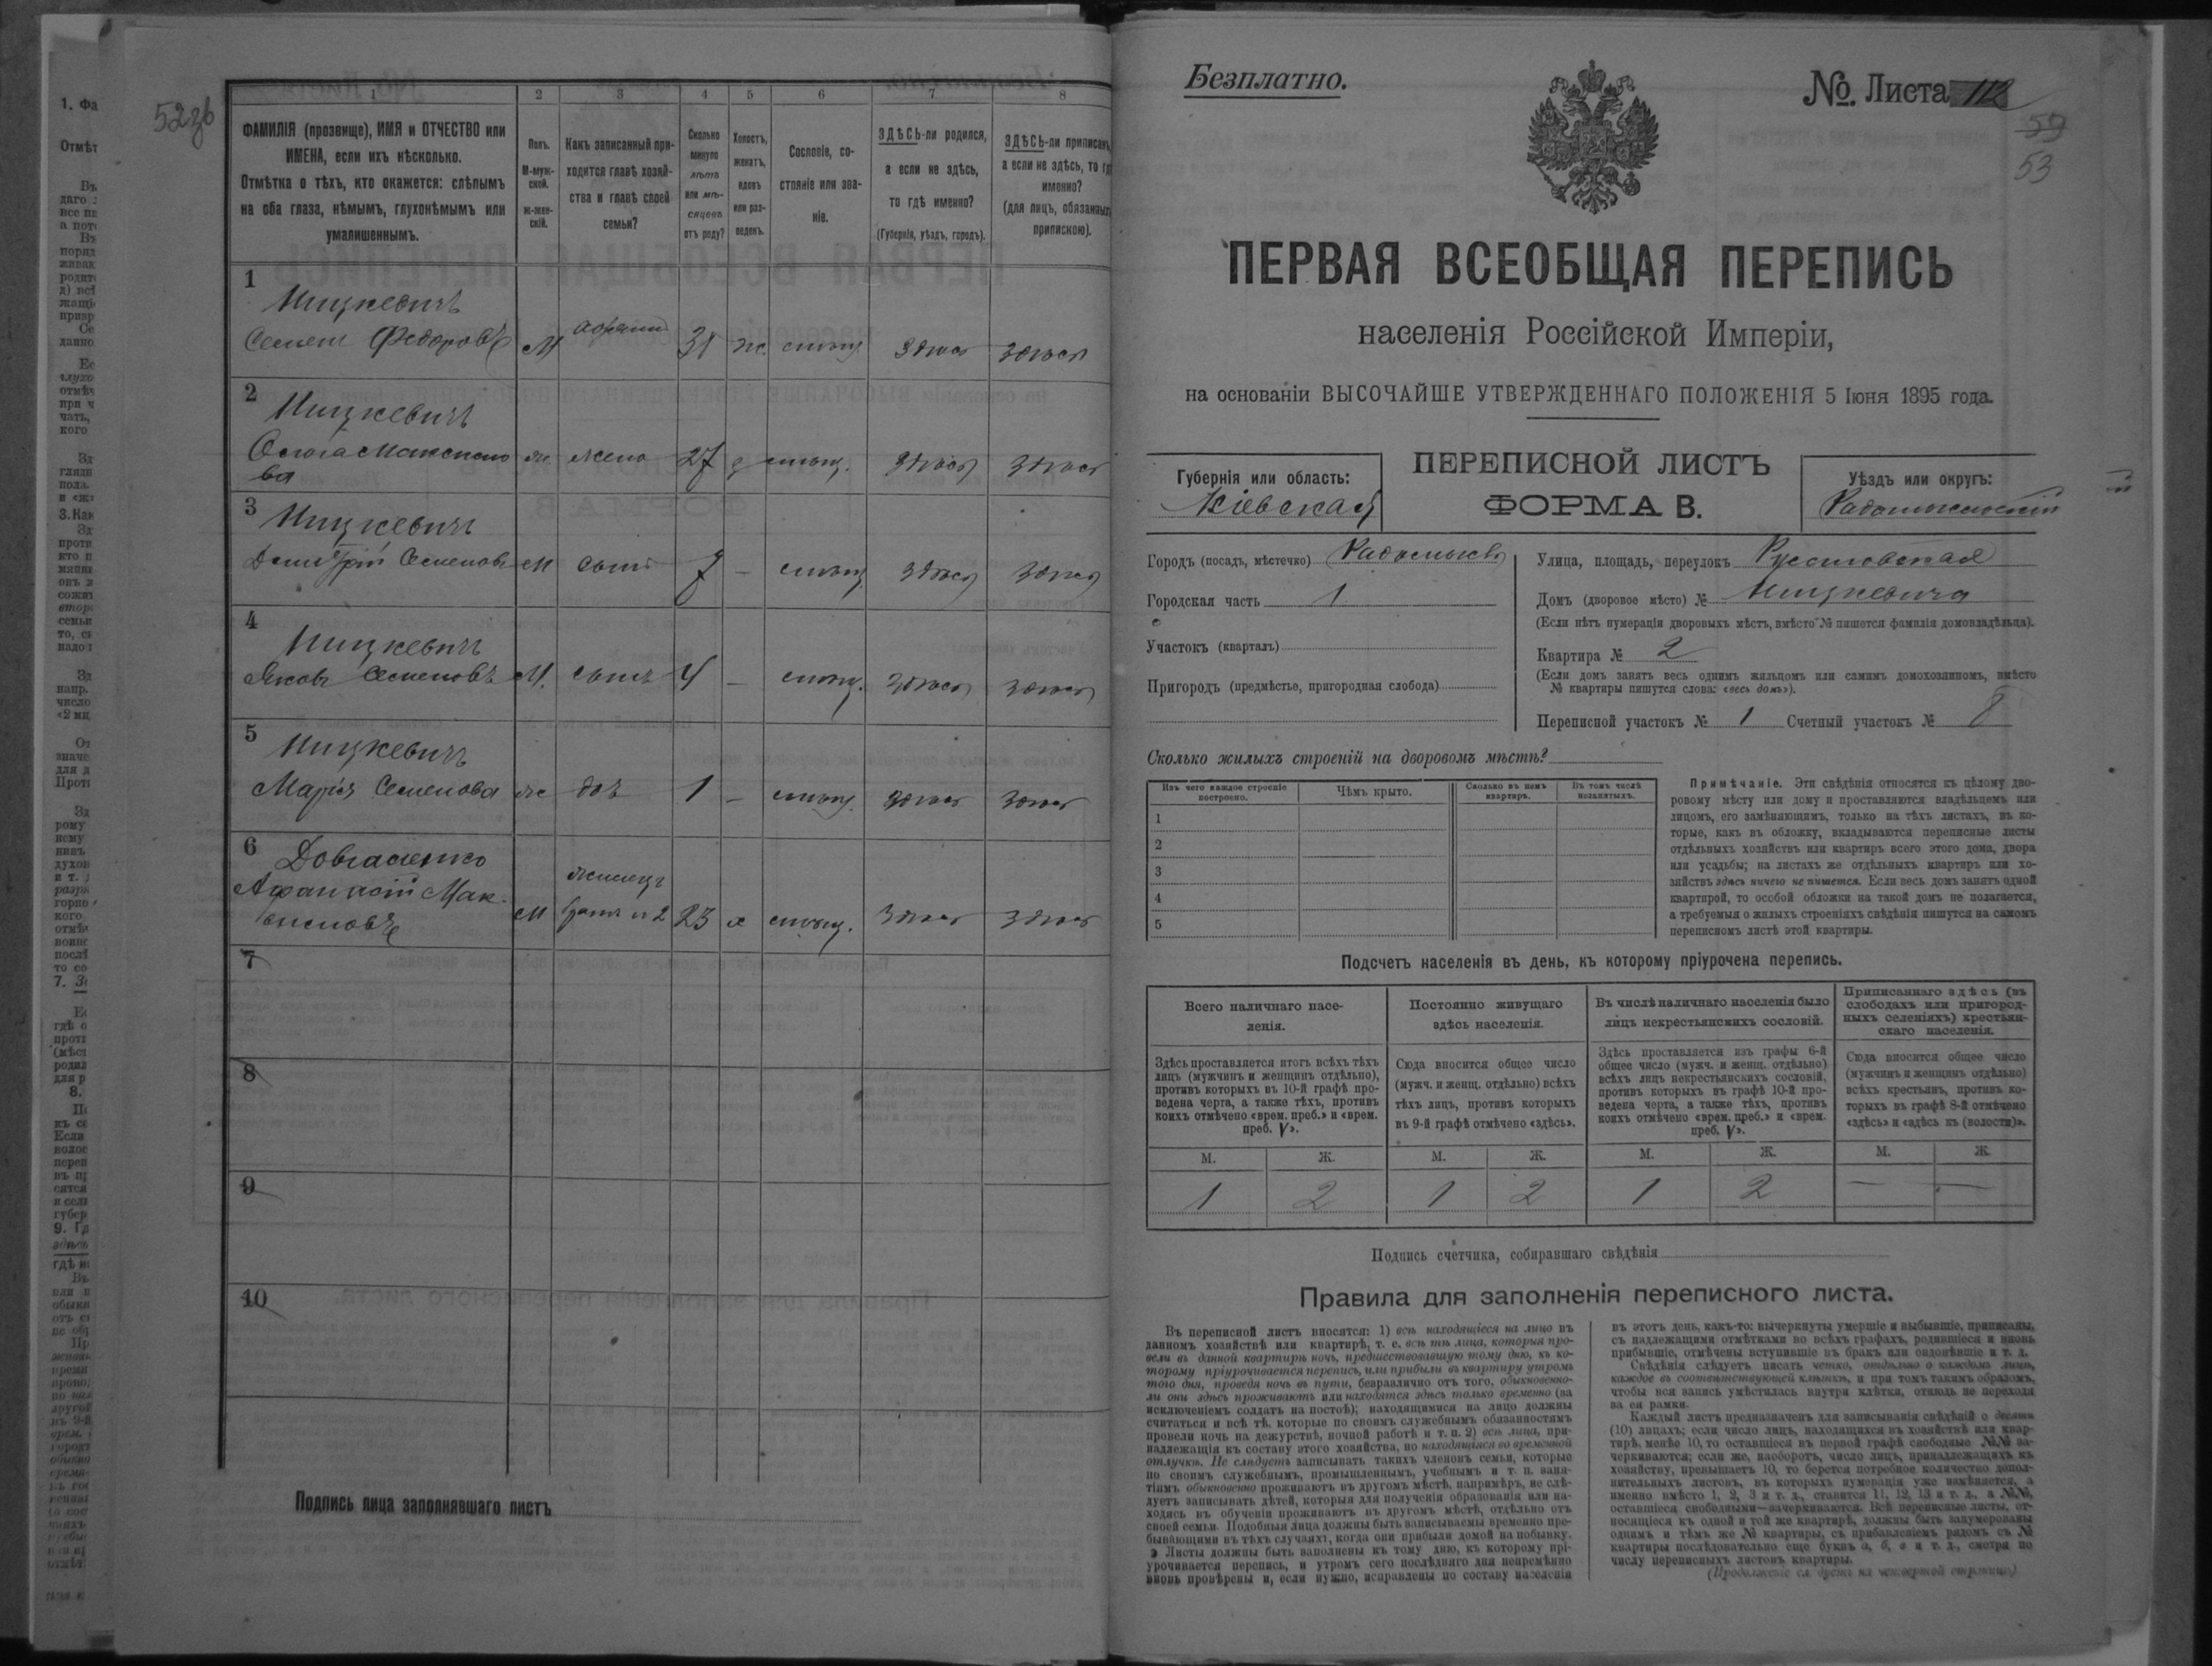 52зв
1 2 3 4 5 6 7 8
ФАМИЛІЯ (прозвище), ИМЯ и ОТЧЕСТВО или
ИМЕНА, если ихъ нѣсколько.
Отмѣтка о тѣхъ, кто окажется: слѣпымъ
на оба глаза, нѣмымъ, глухонѣмымъ или
умалишеннымъ.
Полъ.
М-муж-
ской.
ж-жен-
скій.
Какъ записанный при-
ходится главѣ хозяй-
ства и главѣ своей
семьи?
Сколько
минуло
лѣтъ
или мѣ-
сяцевъ
отъ роду?
Холостъ,
женатъ,
вдовъ
или раз-
веденъ.
Сословіе, со-
стояніе или зва-
ніе.
ЗДѢСЬ-ли родился,
а если не здѣсь,
то гдѣ именно?
(Губернія, уѣздъ, городъ).
ЗДѢСЬ-ли приписан
а если не здѣсь, то гд
именно?
(для лицъ, обязанных
припискою).
1
Ницкевичъ
Семенъ Федоровъ М 31 ж. здѣсь здѣсь
2
Ницкевичъ
ва ж жена 27 з здѣсь здѣсь
3
Ницкевичъ
Дмитрій Семеновъ М сынъ 7 — здѣсь здѣсь
4
Ницкевичъ
Яковъ Семеновъ М. сынъ 4 — здѣсь здѣсь
5
Ницкевичъ
Марія Семенова ж доч 1 — здѣсь здѣсь
6
Афанасій Мак-
симовъ М братъ 2 23 х здѣсь здѣсь
7
8
9
10
Подпись лица заполнявшаго листъ
Безплатно.
№. Листа 112
59
53
ПЕРВАЯ ВСЕОБЩАЯ ПЕРЕПИСЬ
населенія Россійской Имперіи,
на основаніи ВЫСОЧАЙШЕ УТВЕРЖДЕННАГО ПОЛОЖЕНІЯ 5 Іюня 1895 года.
ПЕРЕПИСНОЙ ЛИСТЪ
ФОРМА В.
Губернія или область:
Кіевская
Уѣздъ или округъ:
Радомысльскій
Городъ (посадъ, мѣстечко) Радомысль
Городская часть 1
Участокъ (кварталъ)
Пригородъ (предмѣстье, пригородная слобода)
Улица, площадь, переулокъ
Домъ (дворовое мѣсто) № Ницкевича
(Если нѣтъ нумераціи дворовыхъ мѣстъ, вмѣсто № пишется фамилія домовладѣльца).
Квартира № 2
(Если домъ занятъ весь однимъ жильцомъ или самимъ домохозяиномъ, вмѣсто
№ квартиры пишутся слова: «весь домъ»).
Переписной участокъ № 1 Счетный участокъ № 8
Сколько жилыхъ строеній на дворовомъ мѣстѣ?
Изъ чего каждое строеніе
построено.
Чѣмъ крыто.
Сколько въ немъ
квартиръ.
Въ томъ числѣ
незанятыхъ.
1
2
3
4
5
Примѣчаніе. Эти свѣдѣнія относятся къ цѣлому дво-
ровому мѣсту или дому и проставляются владѣльцемъ или
лицомъ, его замѣняющимъ, только на тѣхъ листахъ, въ ко-
торые, какъ въ обложку, вкладываются переписные листы
отдѣльныхъ хозяйствъ или квартиръ всего этого дома, двора
или усадьбы; на листахъ же отдѣльныхъ квартиръ или хо-
зяйствъ здѣсь ничего не пишется. Если весь домъ занятъ одной
квартирой, то особой обложки на такой домъ не полагается,
а требуемыя о жилыхъ строеніяхъ свѣдѣнія пишутся на самомъ
переписномъ листѣ этой квартиры.
Подсчетъ населенія въ день, къ которому пріурочена перепись.
Всего наличнаго насе-
ленія.
Постоянно живущаго
здѣсь населенія.
Въ числѣ наличнаго населенія было
лицъ некрестьянскихъ сословій.
Приписаннаго здѣсь (въ
слободахъ или пригород-
ныхъ селеніяхъ) крестьян-
скаго населенія.
Здѣсь проставляется итогъ всѣхъ тѣхъ
лицъ (мужчинъ и женщинъ отдѣльно),
противъ которыхъ въ 10-й графѣ про-
ведена черта, а также тѣхъ, противъ
коихъ отмѣчено «врем. преб.» и «врем.
преб. V».
Сюда вносится общее число
(мужч. и женщ. отдѣльно) всѣхъ
тѣхъ лицъ, противъ которыхъ
въ 9-й графѣ отмѣчено «здѣсь».
Здѣсь проставляется изъ графы 6-й
общее число (мужч. и женщ. отдѣльно)
всѣхъ лицъ некрестьянскихъ сословій,
противъ которыхъ въ графѣ 10-й про-
ведена черта, а также тѣхъ, противъ
коихъ отмѣчено «врем. преб.» и «врем.
преб. V».
Сюда вносится общее число
(мужчинъ и женщинъ отдѣльно)
всѣхъ крестьянъ, противъ ко-
торыхъ въ графѣ 8-й отмѣчено
«здѣсь» и «здѣсь къ (волости)».
М. Ж. М. Ж. М. Ж. М. Ж.
1 2 1 2 1 2 — —
Подпись счетчика, собиравшаго свѣдѣнія
Правила для заполненія переписного листа.
Въ переписной листъ вносятся: 1) всѣ находящіеся на лицо въ
данномъ хозяйствѣ или квартирѣ, т. е. всѣ тѣ лица, которыя про-
вели въ данной квартирѣ ночь, предшествовавшую тому дню, къ ко-
торому пріурочивается перепись, или прибыли въ квартиру утромъ
того дня, проведя ночь въ пути, безразлично отъ того, обыкновенно-
ли они здѣсь проживаютъ или находятся здѣсь только временно (за
исключеніемъ солдатъ на постоѣ); находящимися на лицо должны
считаться и всѣ тѣ, которые по своимъ служебнымъ обязанностямъ
провели ночь на дежурствѣ, ночной работѣ и т. п. 2) всѣ лица, при-
надлежащія къ составу этого хозяйства, но находящіяся во временной
отлучкѣ. Не слѣдуетъ записывать такихъ членовъ семьи, которые
по своимъ служебнымъ, промышленнымъ, учебнымъ и т. п. заня-
тіямъ обыкновенно проживаютъ въ другомъ мѣстѣ, напримѣръ, не слѣ-
дуетъ записывать дѣтей, которыя для полученія образованія или на-
ходясь въ обученіи проживаютъ въ другомъ мѣстѣ, отдѣльно отъ
своей семьи. Подобныя лица должны быть записываемы временно пре-
бывающими въ тѣхъ случаяхъ, когда они прибыли домой на побывку.
Листы должны быть заполнены къ тому дню, къ которому прі-
урочивается перепись, и утромъ сего послѣдняго дня непремѣнно
вновь провѣрены и, если нужно, исправлены по составу населенія
въ этотъ день, какъ-то: вычеркнуты умершіе и выбывшіе, приписаны,
съ надлежащими отмѣтками во всѣхъ графахъ, родившіеся и вновь
прибывшіе, отмѣчены вступившіе въ бракъ или овдовѣвшіе и т. д.
Свѣдѣнія слѣдуетъ писать четко, отдѣльно о каждомъ лицѣ,
каждое въ соотвѣтствующей клѣткѣ, и при томъ такимъ образомъ,
чтобы вся запись умѣстилась внутри клѣтки, отнюдь не переходя
за ея рамки.
Каждый листъ предназначенъ для записыванія свѣдѣній о десяти
(10) лицахъ; если число лицъ, находящихся въ хозяйствѣ или квар-
тирѣ, менѣе 10, то оставшіеся въ первой графѣ свободные №№ за-
черкиваются; если же, наоборотъ, число лицъ, принадлежащихъ къ
хозяйству, превышаетъ 10, то берется потребное количество допол-
нительныхъ листовъ, въ которыхъ нумерація уже измѣняется, а
именно вмѣсто 1, 2, 3 и т. д., ставится 11, 12, 13 и т. д., а №№,
оставшіеся свободными—зачеркиваются. Всѣ переписные листы, от-
носящіеся къ одной и той же квартирѣ, должны быть занумерованы
однимъ и тѣмъ же № квартиры, съ прибавленіемъ рядомъ съ №
квартиры послѣдовательно еще буквъ а, б, в и т. д., смотря по
числу переписныхъ листовъ квартиры.
(Продолженіе слѣдуетъ на четвертой страницѣ)